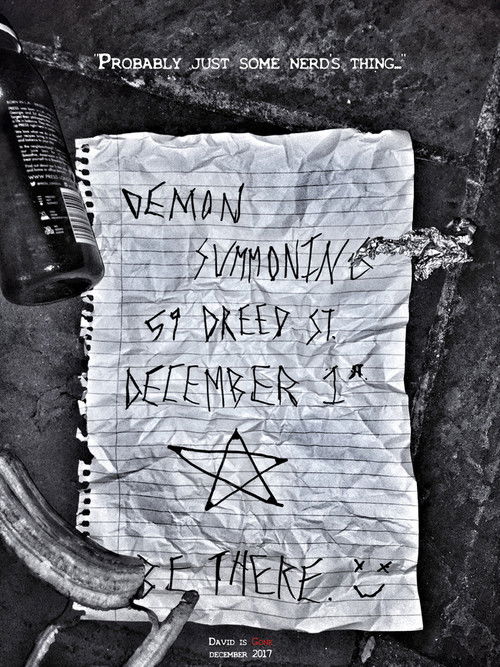 "Probably just some nerd's thing..."
DEMON
SUMMONING
59 DREED ST.
DECEMBER 1ST.
BE THERE.
David is Gone
december 2017